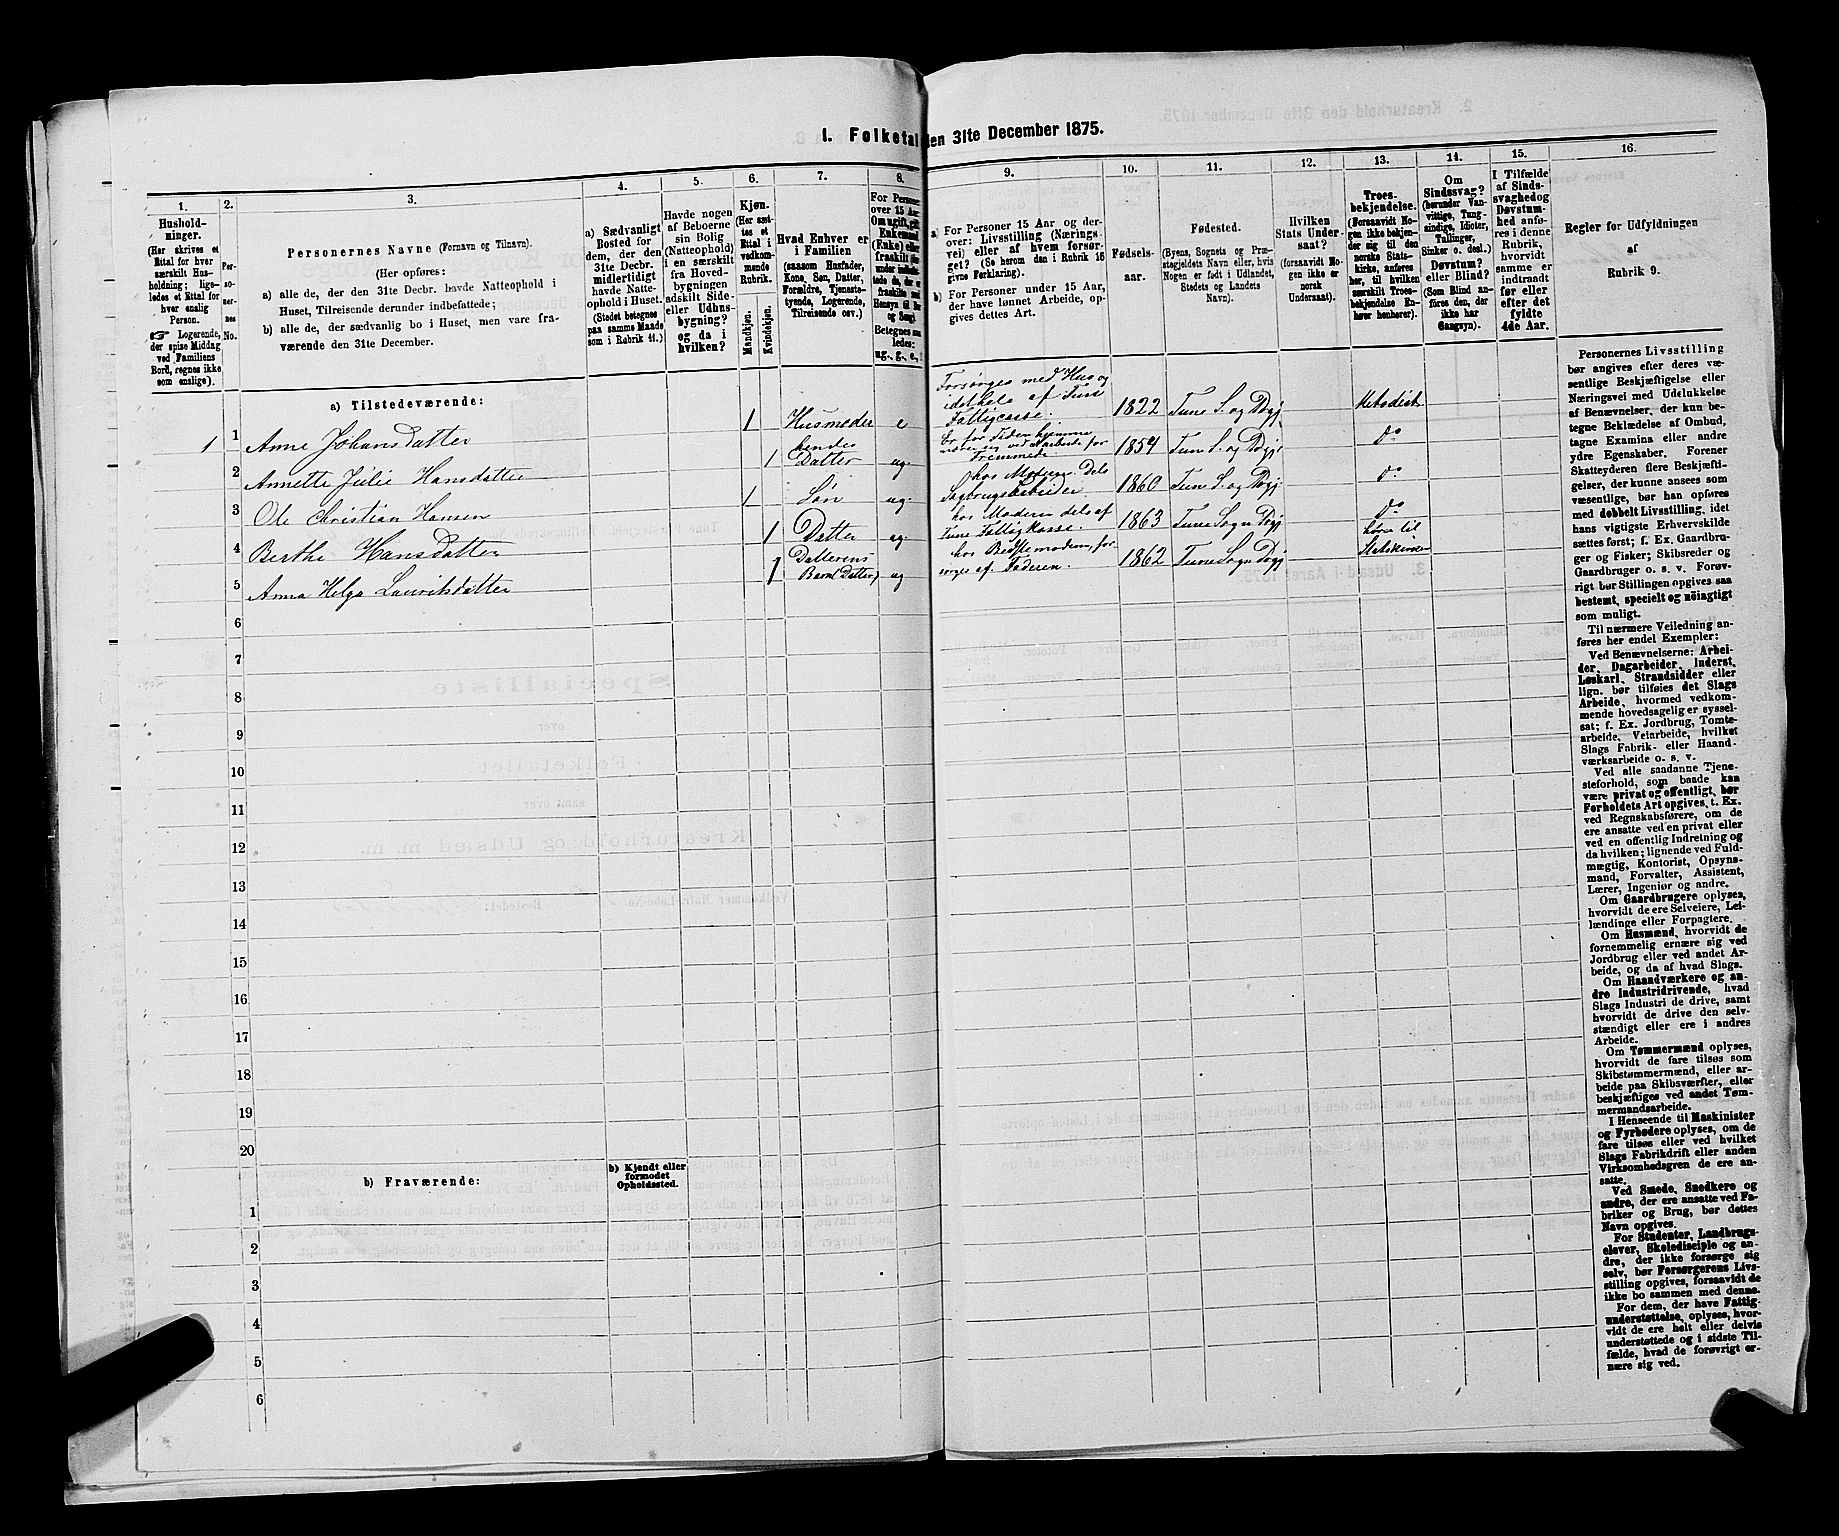 I. Folketal den 31te December 1875.
1.
Hushold-
ninger.
(Her skrives et
Ettal for hver
særskilt Hus-
holdning; lige-
ledes et Ettal for
hver enslig
Person.
☞ Logerende,
der spise Middag
ved Familiens
Bord, regnes ikke
som enslige).
2.
Per-
so-
ner-
nes
No.
3.
Personernes Navne (Fornavn og Tilnavn).
(Her opføres:
a) alle de, der den 31te Decbr. havde Natteophold i
Huset, Tilreisende derunder indbefattede;
b) alle de, der sædvanlig bo i Huset, men vare fra-
værende den 31te December.
4.
a) Sædvanligt
Bosted for
dem, der den
31te Decbr.
midlertidigt
havde Natte-
ophold i Huset.
(Stedet betegnes
paa samme Maade
som i Rubrik 11.)
5.
Havde nogen
af Beboerne
sin Bolig
(Natteophold)
i en særskilt
fra Hoved-
bygningen
adskilt Side-
eller Udhus-
bygning?
og da i
hvilken?
6.
Kjøn.
(Her sæt-
tes et
Ettal i
vedkom-
mende
Rubrik.
Mandkjøn.
Kvindekjøn.
7.
Hvad Enhver er
i Familien
(saasom Husfader,
Kone, Søn, Datter,
Forældre, Tjeneste-
tyende, Logerende,
Tilreisende osv.)
8.
For Personer
over 15 Aar:
9.
a) For Personer 15 Aar og der-
over: Livsstilling (Nærings-
vei) eller af hvem forsør-
get? (Se herom den i Rubrik 16
givne Forklaring).
b) For Personer under 15 Aar,
der have lønnet Arbeide, op-
gives dettes Art.
10.
Fødsels-
aar.
11.
Fødested.
(Byens, Sognets og Præ-
stegjeldets Navn eller, hvis
Nogen er født i Udlandet,
Stedets og Landets
Navn).
12.
Hvilken
Stats Under-
saat?
(forsaavidt No-
gen ikke er
norsk
Undersaat).
13.
Troes-
bekjendelse.
(Forsaavidt No-
gen ikke bekjen-
der sig til den
norske Stats-
kirke, anføres
her, til hvilken
særskilt Troes-
bekjendelse En-
hver henhører).
14.
Om
Sindssvag?
(herunder Van-
vittige, Tung-
sindige, Idioter,
Tullinger,
Sinker o. desl.)
Døvstum?
eller Blind?
(Som Blind an-
føres den, der
ikke har
Gangsyn).
15.
I Tilfælde
af Sinds-
svaghed og
Døvstum-
hed anfø-
res i denne
Rubrik,
hvorvidt
samme er
indtraadt
før eller
efter det
fyldte
4de Aar.
16.
Regler for Udfyldningen
af
Rubrik 9.
a) Tilstedeværende:
1 1 Anne Johansdatter 1 Husmoder e Forsørges med Hus og
idethele af Tune
Fattigcasse. 1822 Tune S. og Pgj. Methodist
2 Annette Julie Hansdatter 1 hendes
Datter ug. Er for Tiden hjemme
nærer sig ved Arbeide for
Fremmede 1854 Tune S. og Pgj. do
3 Ole Christian Hansen 1 Søn ug. hos Moderen. Dels
Sagbrugsarbeider 1860 Tune S. og Pgj. do
4 Berthe Hansdatter 1 Datter ug. hos Moderen dels af
Tune Fattigkasse. 1863 Tune Sogn Pgj. do
5 Anna Helga Lauritsdatter 1 Datterens
Barn (Datter) ug hos Bedstemoderen, for-
sørges af Faderen. 1862 Tune Sogn Pgj hører til
Statskirken
6
7
8
9
10
11
12
13
14
15
16
17
18
19
20
b) Fraværende:
b) Kjendt eller
formodet
Opholdssted.
1
2
3
4
5
6
Personernes Livsstilling
bør angives efter deres væ-
sentlige Beskjæftigelse eller
Næringsvei med Udelukkelse
af Benævnelser, der kun be-
tegne Beklædelse af Ombud,
tagne Examina eller andre
ydre Egenskaber. Forener
Skatteyderen flere Beskjæfti-
gelser, der kunne ansees som
væsentlige, bør han opføres
med dobbelt Livsstilling, idet
hans vigtigste Erhvervskilde
sættes først; f. Ex. Gaardbru-
ger og Fisker; Skibsreder og
Gaardbruger o. s. v. Forøv-
rigt bør Stillingen opgives saa
bestemt, specielt og nøiagtigt
som muligt.
Til nærmere Veiledning an-
føres her endel Exempler:
Ved Benævnelserne: Arbei-
der, Dagarbeider, Inderst,
Løskarl, Strandsidder eller
lign. bør tilføies det Slags
Arbeide, hvormed vedkom-
mende hovedsagelig er syssel-
sat; f. Ex. Jordbrug, Tomte-
arbeide, Veiarbeide, hvilket
Slags Fabrik- eller Haand-
værksarbeide o. s. v.
Ved alle saadanne Tjene-
steforhold, som baade kan
være privat og offentligt, bør
Forholdets Art opgives, t. Ex.
ved Regnskabsførere, om de
ere ansatte ved en privat eller
ved en offentlig Indretning og
da hvilken; lignende ved Fuld-
mægtig, Kontorist, Opsyns-
mand, Forvalter, Assistent,
Lærer, Ingeniør og andre.
Om Gaardbrugere oplyses,
hvorvidt de ere Selveiere, Lei-
lændinge eller Forpagtere.
Om Husmænd, hvorvidt de
fornemmelig ernære sig ved
Jordbrug eller ved andet Ar-
beide, og da af hvad Slags.
Om Haandværkere og an-
dre Industridrivende, hvad
Slags Industri de drive, samt
hvorvidt de drive den selv-
stændigt eller ere i andres
Arbeide.
Om Tømmermænd oplyses,
hvorvidt de fare tilsøs som
Skibstømmermænd, eller ar-
beide paa Skibsværfter, eller
beskjæftiges ved andet Tøm-
mermandsarbeide.
I Henseende til Maskinister
og Fyrbødere oplyses, om de
fare tilsøs eller ved hvilket
Slags Fabrikdrift eller anden
Virksomhedsgren de ere an-
satte.
Ved Smede, Snedkere og
andre, der ere ansatte ved Fa-
briker og Brug, bør dettes
Navn opgives.
For Studenter, Landbrugs-
elever, Skoledisciple og an-
dre, der ikke forsørge sig
selv, bør Forsørgerens Livs-
stilling opgives, forsaavidt de
ikke bo sammen med denne.
For dem, der have Fattig-
understøttelse, oplyses, hvor-
vidt de ere helt eller delvis
understøttede og i sidste Til-
fælde, hvad de forøvrigt er-
nære sig ved.